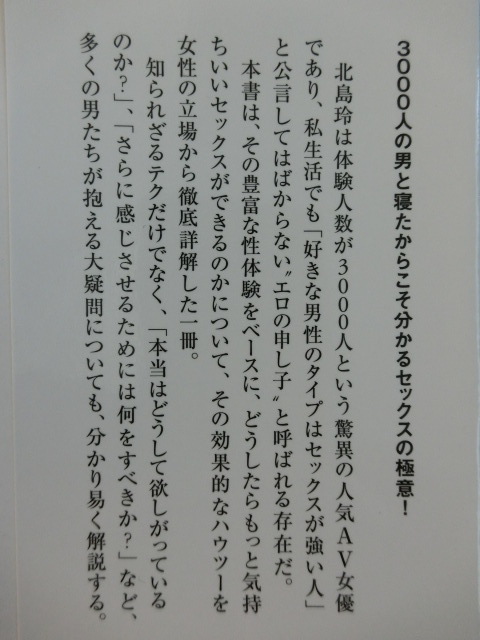 3000人の男と寝たからこそ分かるセックスの極意！
北島玲は体験人数が3000人という驚異の人気AV女優
であり、私生活でも「好きな男性のタイプはセックスが強い人」
と公言してはばからない〝エロの申し子〟と呼ばれる存在だ。
本書は、その豊富な性体験をベースに、どうしたらもっと気持
ちいいセックスができるのかについて、その効果的なハウツーを
女性の立場から徹底詳解した一冊。
知られざるテクだけでなく、「本当はどうして欲しがっている
のか?」、「さらに感じさせるためには何をすべきか?」など、
多くの男たちが抱える大疑問についても、分かり易く解説する。